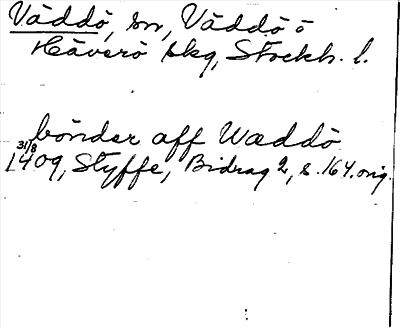 Väddö, sn, Väddö o
Häverö skg, Stockh. l.
bönder aff Wæddö
31/8 1409, Styffe, Bidrag 2, s. 164. orig.